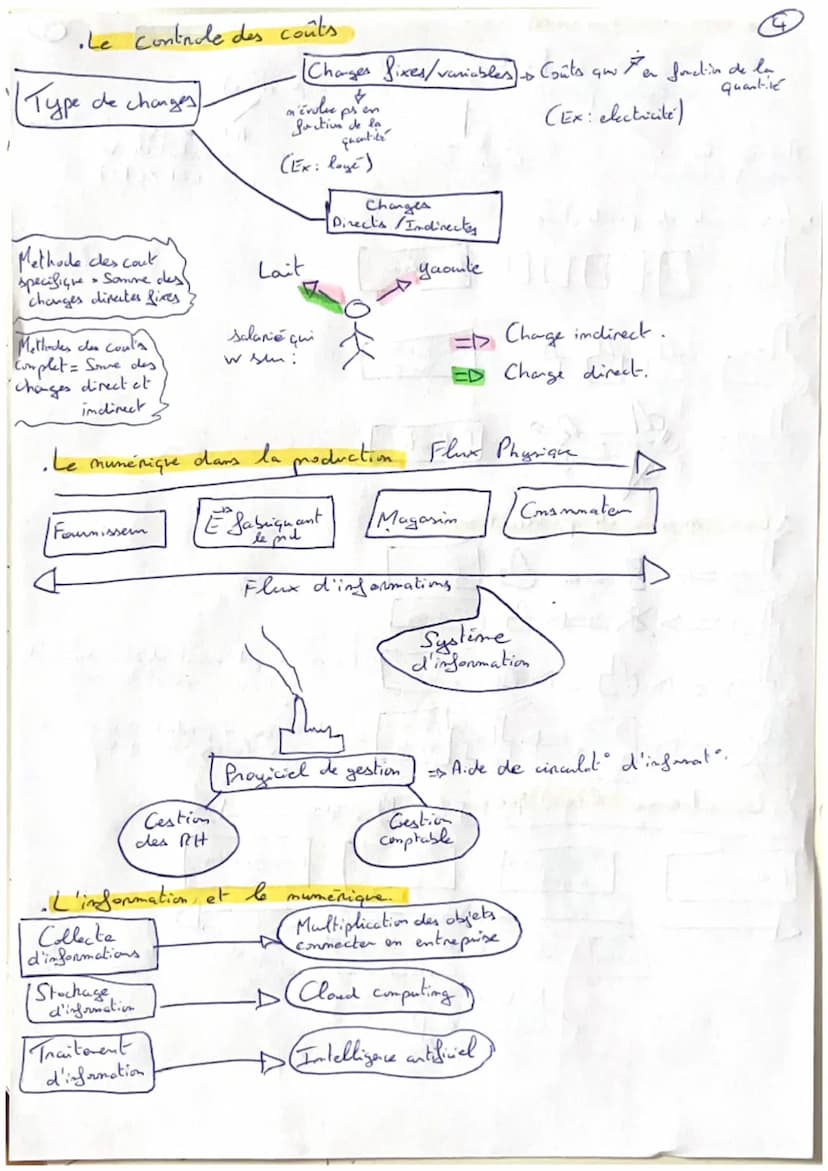 4
.Le controle des coûts
Type de charges
Charges fixes/variables → Coûts qui ↗ en fonction de la
quantité
(Ex: electricité)
n'évolue ps en
fonction de la
quantité
(Ex: loyé)
Charges
Directs / Indirectes
Methode des cout
specifique = Somme des
charges directes fixes
Methodes des couts
complet = Some des
charges direct et
indirect
Lait
yaourte
salarié qui
w sur :
=> Charge indirect.
=> Charge direct.
.Le numérique dans la production
Flux Physique
Fournisseur
E^se fabriquant
le prd
Magasin
Consommateur
Flux d'informations
Système
d'information
Progiciel de gestion => Aide de circulat° d'informat°.
Gestion
des RH
Gestion
comptable
.L'information et le numérique.
Collecte
d'informations
Multiplication des objets
connecter en entreprise
Stockage
d'information
Cloud computing
Traitement
d'information
Intelligence artificiel